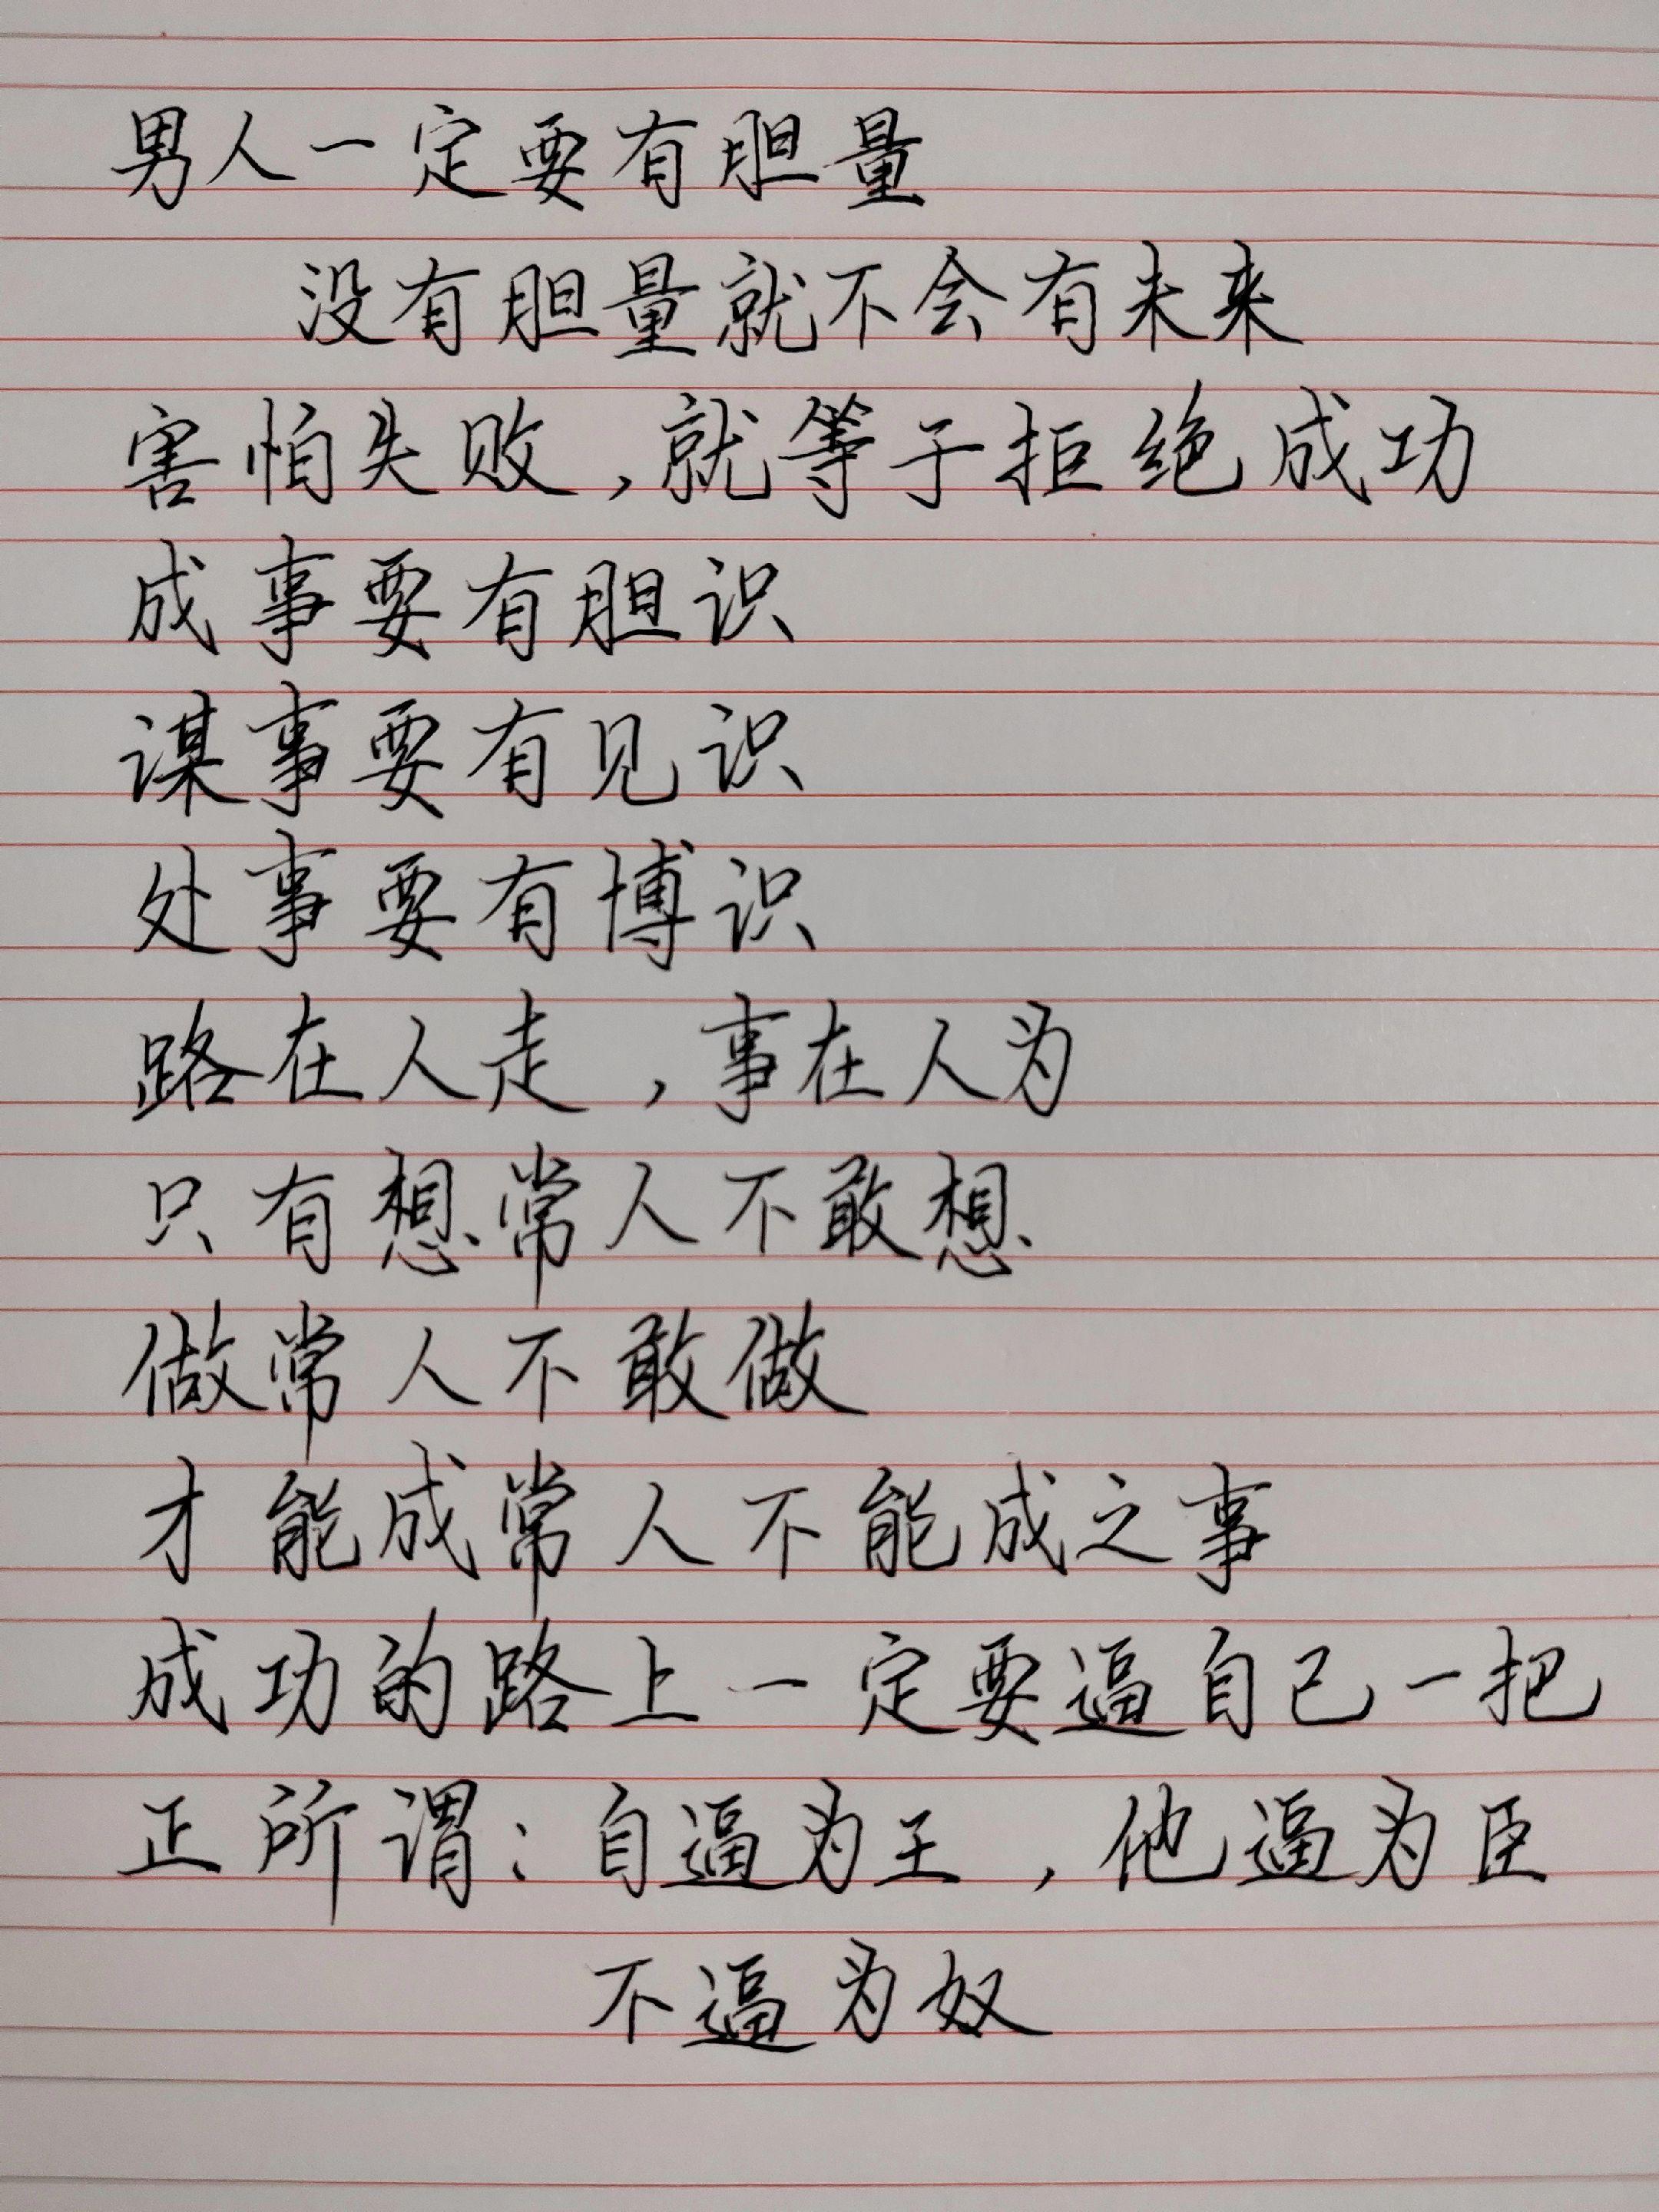 男人一定要有胆量
没有胆量就不会有未来
害怕失败,就等于拒绝成功
成事要有胆识
谋事要有见识
处事要有博识
路在人走,事在人为
只有想常人不敢想
做常人不敢做
才能成常人不能成之事
成功的路上一定要逼自己一把
正所谓:自逼为王,他逼为臣
不逼为奴